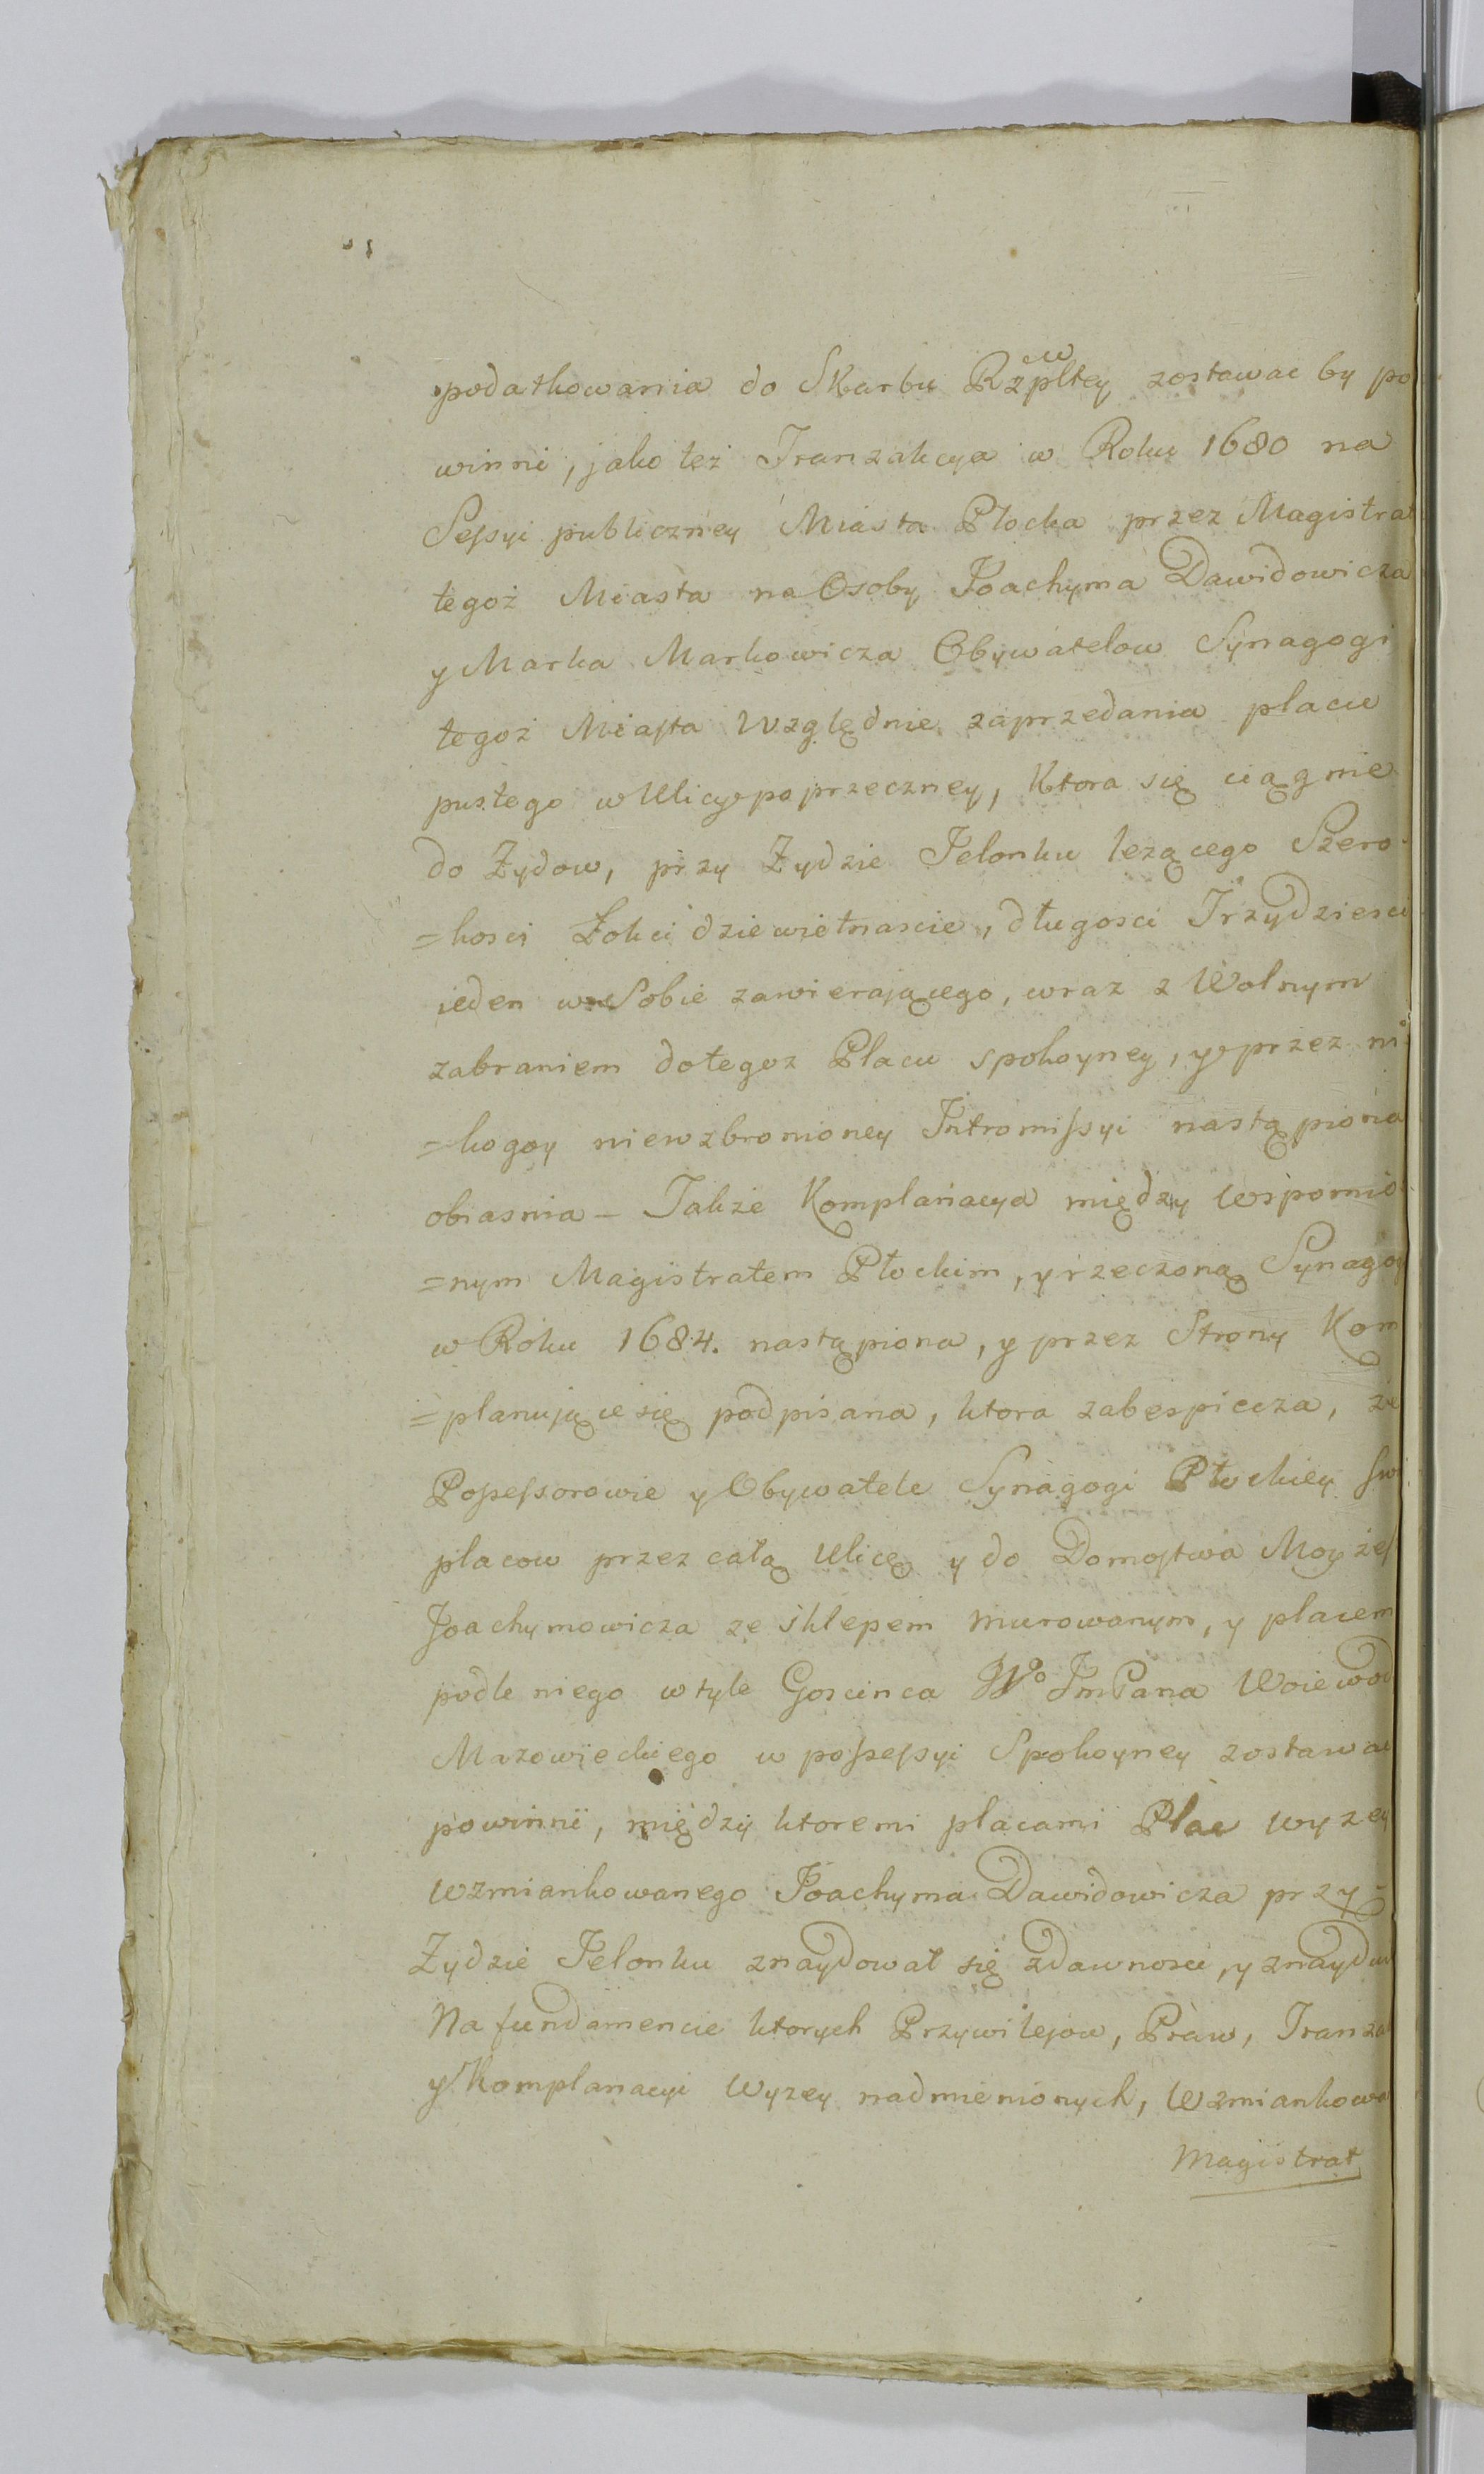 podatkowania do Skarbu Rzpltey zostawac by po
winni, jako tez Tranzakcya w Roku 1680 na
Sessyi publiczney Miasta Płocka przez Magistrat
tegoż Miasta na Osoby Joachyma Dawidowicza
y Marka Markowicza Obywatelow Synagogi
tegoż Miasta Względnie zaprzedania placu
pustego w Ulicy poprzeczney, Ktora się ciągnie
do Zydow, przy Zydzie Jelonku lezącego Szero
=kosci Łokci dziewiętnascie, długosci Trzydziesci
ieden w Sobie zawierającego, wraz z Wolnym
zabraniem do tegoz Placu spokoyney, y przez ni
=kogoy niewzbronioney Intromissyi nastąpiona
obiasnia – Takze Komplanacya między wspomnio
=nym Magistratem Płockim, y rzeczoną Synagog
w Roku 1684. nastąpiona, y przez Strony Kom
=planujące się podpisana, ktora zabespiecza, że
Possessorowie y Obywatele Synagogi Płockiey Sw
placow przez całą Ulicę y do Domostwa Moyżes
Joachymowicza ze sklepem murowanym, y placem
podle niego w tyle Goscinca Wo JmPana Woiewod
Mazowieckiego w possessyi Spokoyney zostawac
powinni, między ktoremi placami Plac wyzey
wzmiankowanego Joachyma Dawidowicza przy
Zydzie Jelonku znaydował się zdawnosci, y znaydu
Na fundamencie ktorych Przywilejow, Praw, Tranza
y Komplanacyi wyzey nadmienionych, wzmiankowa
Magistrat